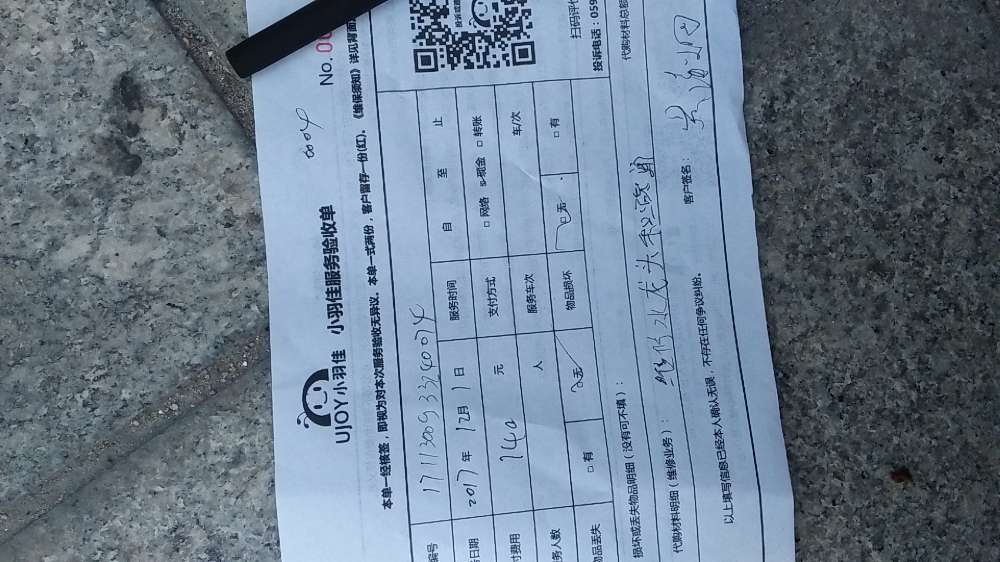 0004
UJOY小羽佳 小羽佳服务验收单
No.00
本单一经核签，即视为对本次服务验收无异议。本单一式两份，客户留存一份(红)，《维保须知》详见背面
编号 1711300933240074
日期 2017年12月1日 服务时间 自 至 止
付费用 140 元 支付方式 □网络 ☑现金 □转账
务人数 人 服务车次 车/次
物品丢失 □有 ☑无 物品损坏 ☑无 □有
扫码评价
投诉电话：059
损坏或丢失物品明细（没有可不填）：
代购材料总额
代购材料明细（维修业务）： 维修水龙头和
客户签名：
以上填写信息已经本人确认无误，不存在任何争议纠纷。